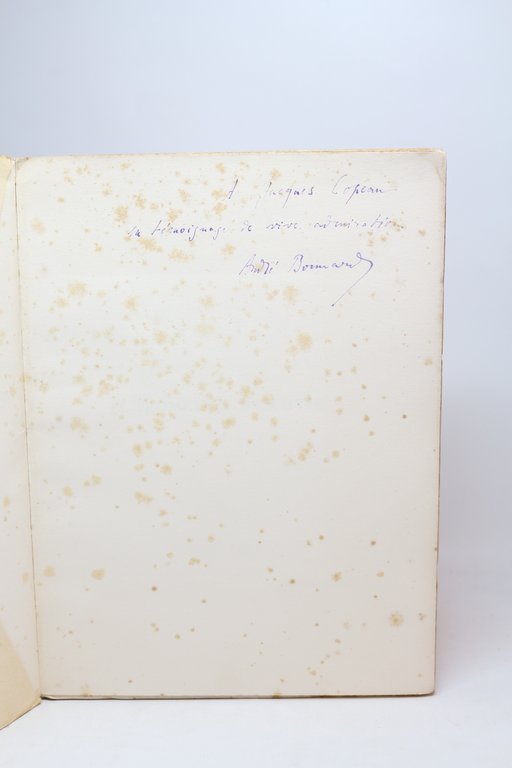 A Jacques Copeau
en témoignage de vive admiration
André Bonnard